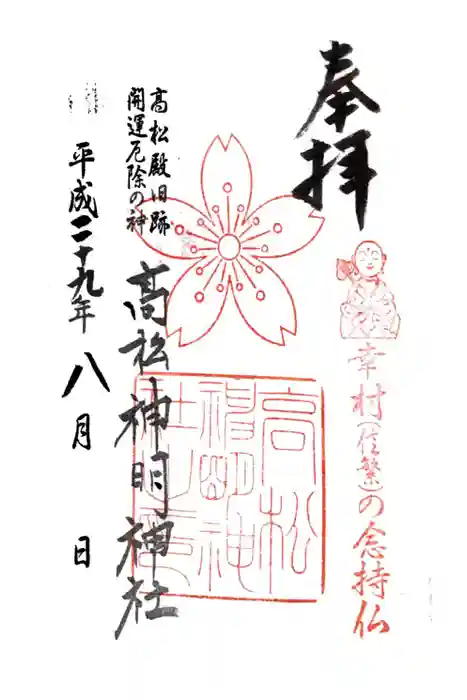 奉拝
幸村(信繁)の念持仏
高松殿旧跡
開運厄除の神
高松神明神社
高松
神明神
社之
平成二十九年八月 日